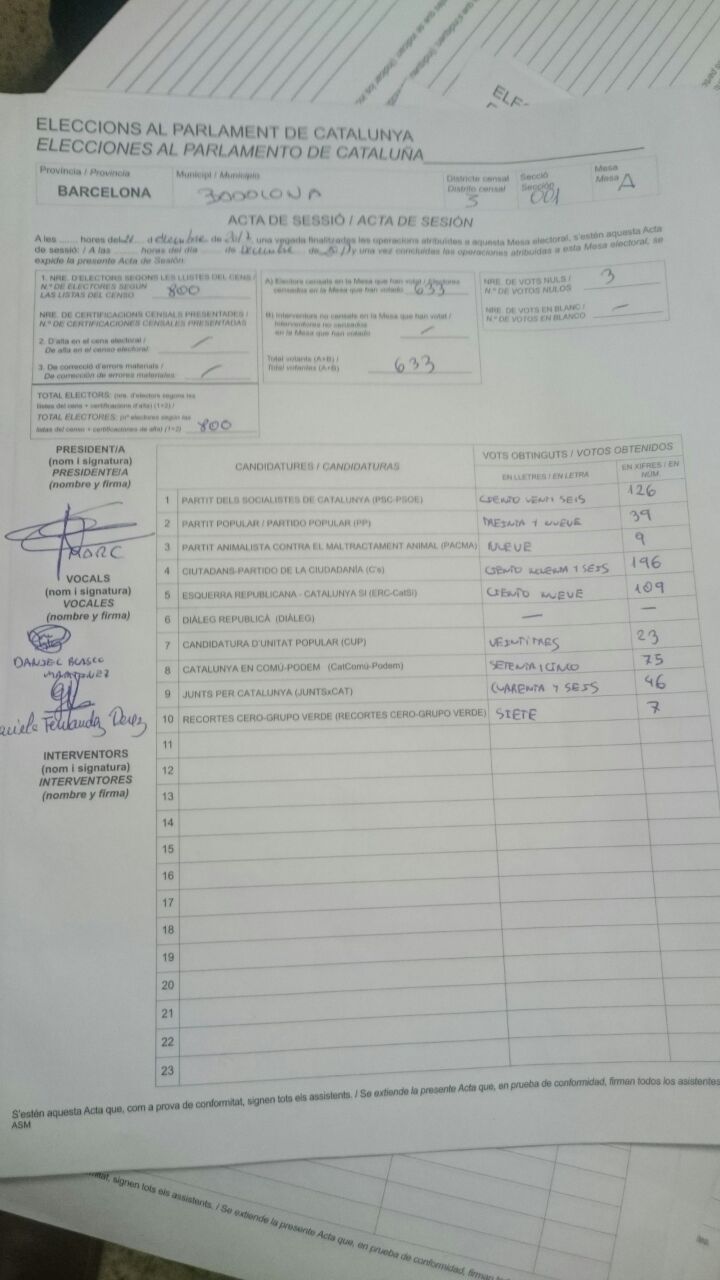 ELECCIONS AL PARLAMENT DE CATALUNYA
ELECCIONES AL PARLAMENTO DE CATALUÑA
Província / Provincia
BARCELONA
Municipi / Municipio
BADALONA
Districte censal
Distrito censal
3
Secció
Sección
001
Mesa
Mesa
A
ACTA DE SESSIÓ / ACTA DE SESIÓN
A les ...... hores del d diciembre de 2017, una vegada finalitzades les operacions atribuïdes a aquesta Mesa electoral, s'estén aquesta Acta
de sessió: / A las ........ horas del día ...... de Diciembre de y una vez concluidas las operaciones atribuidas a esta Mesa electoral, se
expide la presente Acta de Sesión:
1. NRE. D'ELECTORS SEGONS LES LLISTES DEL CENS /
N.º DE ELECTORES SEGÚN
LAS LISTAS DEL CENSO 800
NRE. DE CERTIFICACIONS CENSALS PRESENTADES /
N.º DE CERTIFICACIONES CENSALES PRESENTADAS
2. D'alta en el cens electoral /
De alta en el censo electoral:
3. De correcció d'errors materials /
De corrección de errores materiales:
TOTAL ELECTORS: (nre. d'electors segons les
llistes del cens + certificacions d'alta) (1+2) /
TOTAL ELECTORES: (nº electores según las
listas del censo + certificaciones de alta) (1+2) 800
A) Electors censats en la Mesa que han votat / Electores
censados en la Mesa que han votado 633
B) Interventors no censats en la Mesa que han votat /
Interventores no censados
en la Mesa que han votado
Total votants (A+B) /
Total votantes (A+B) 633
NRE. DE VOTS NULS /
N.º DE VOTOS NULOS 3
NRE. DE VOTS EN BLANC /
N.º DE VOTOS EN BLANCO —
PRESIDENT/A
(nom i signatura)
PRESIDENTE/A
(nombre y firma)
MARC
VOCALS
(nom i signatura)
VOCALES
(nombre y firma)
DANIEL BLASCO
MARTINEZ
Fernandez Perez
INTERVENTORS
(nom i signatura)
INTERVENTORES
(nombre y firma)
CANDIDATURES / CANDIDATURAS
VOTS OBTINGUTS / VOTOS OBTENIDOS
EN LLETRES / EN LETRA
EN XIFRES / EN NÚM.
1 PARTIT DELS SOCIALISTES DE CATALUNYA (PSC-PSOE) CIENTO VENTI SEIS 126
2 PARTIT POPULAR / PARTIDO POPULAR (PP) TREINTA Y NUEVE 39
3 PARTIT ANIMALISTA CONTRA EL MALTRACTAMENT ANIMAL (PACMA) NUEVE 9
4 CIUTADANS-PARTIDO DE LA CIUDADANÍA (C's) CIENTO NOVENTA Y SEIS 196
5 ESQUERRA REPUBLICANA - CATALUNYA SÍ (ERC-CatSí) CIENTO NUEVE 109
6 DIÀLEG REPUBLICÀ (DIÀLEG) — —
7 CANDIDATURA D'UNITAT POPULAR (CUP) VEINTITRES 23
8 CATALUNYA EN COMÚ-PODEM (CatComú-Podem) SETENTA I CINCO 75
9 JUNTS PER CATALUNYA (JUNTSxCAT) CUARENTA Y SEIS 46
10 RECORTES CERO-GRUPO VERDE (RECORTES CERO-GRUPO VERDE) SIETE 7
11
12
13
14
15
16
17
18
19
20
21
22
23
S'estén aquesta Acta que, com a prova de conformitat, signen tots els assistents. / Se extiende la presente Acta que, en prueba de conformidad, firman todos los asistentes
ASM
signen tots els assistents. / Se extiende la presente Acta que, en prueba de conformidad, firman